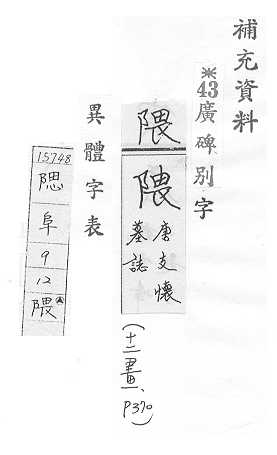 補充資料
※43廣碑別字
隈
隈
唐支懷
墓誌
(十二畫、
P370)
異體字表
15748
隈
阜
9
12
隈